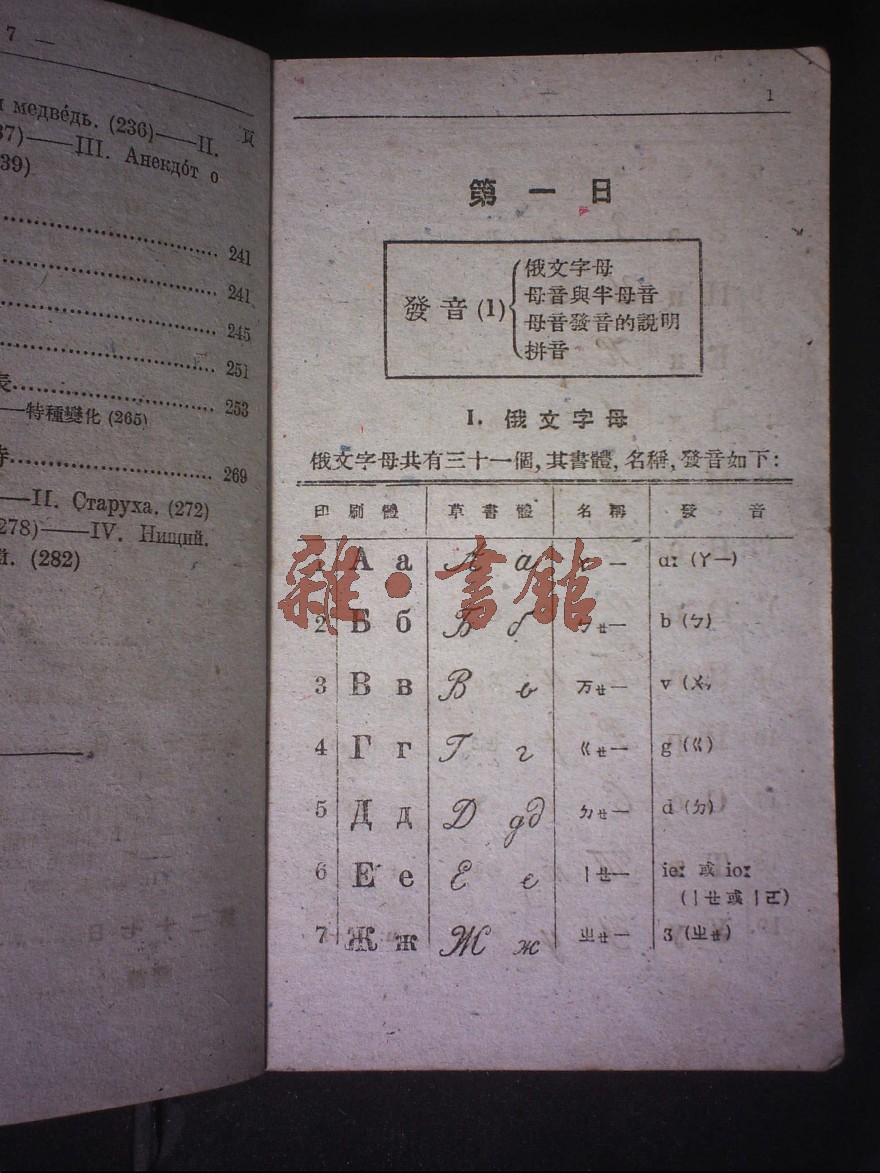 7 —
медве́дь. (236)——II.
37)——III. Анекдо́т о
39)
241
241
245
251
253
——特種變化 (265)
269
——II. Старуха. (272)
278)——IV. Нищий.
й. (282)
1
第一日
發音(1)
俄文字母
母音與半母音
母音發音的說明
拼音
I. 俄文字母
俄文字母共有三十一個,其書體,名稱,發音如下:
印刷體 草書體 名稱 發音
1 А а А а ㄚ— ɑː (ㄚ—)
2 Б б Б б ㄅㄝ— b (ㄅ)
3 В в В в ㄪㄝ— v
4 Г г Г г ㄍㄝ— g (ㄍ)
5 Д д Д дд ㄉㄝ— d (ㄉ)
6 Е е Е е ㄧㄝ— ieː 或 ioː
(ㄧㄝ或ㄧㄛ)
7 Ж ж Ж ж ㄓㄝ— ʒ (ㄓㄝ)
雜·書館